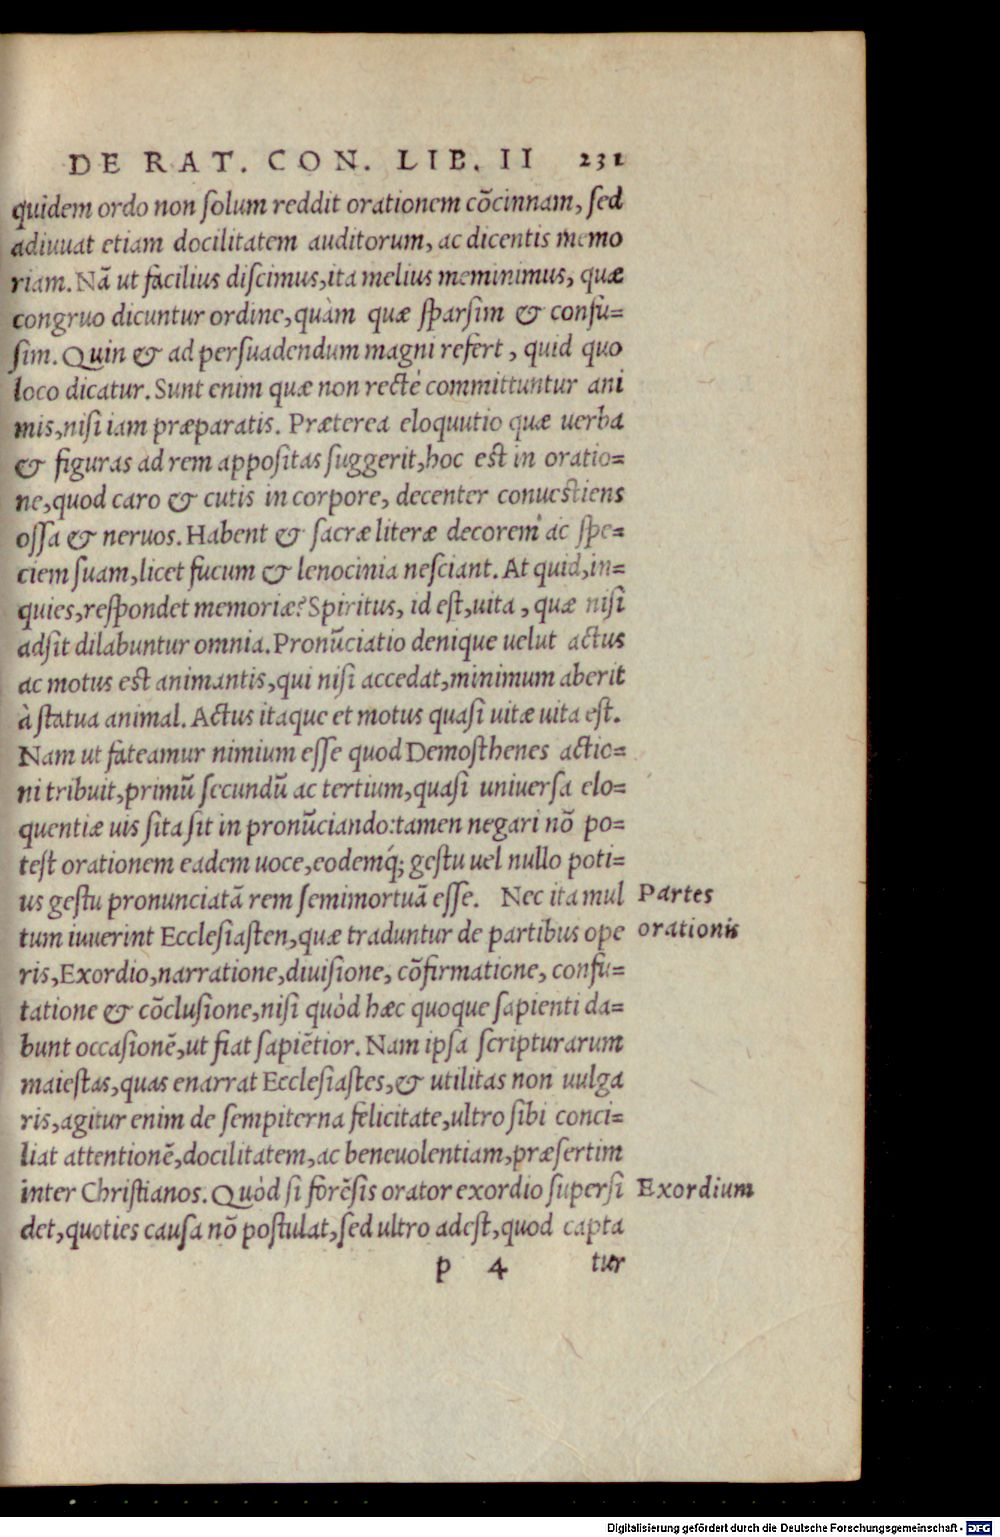 DE RAT. CON. LIB. II 231
quidem ordo non solum reddit orationem cõcinnam, sed
adiuuat etiam docilitatem auditorum, ac dicentis memo
riam. Nã ut facilius discimus, ita melius meminimus, quæ
congruo dicuntur ordine, quàm quæ sparsim & confu=
sim. Quin & ad persuadendum magni refert, quid quo
loco dicatur. Sunt enim quæ non recté committuntur ani
mis, nisi iam præparatis. Præterea eloquutio quæ uerba
& figuras ad rem appositas suggerit, hoc est in oratio=
ne, quod caro & cutis in corpore, decenter conuestiens
ossa & neruos. Habent & sacræ literæ decorem ac spe=
ciem suam, licet fucum & lenocinia nesciant. At quid, in=
quies, respondet memoriæ? Spiritus, id est, uita, quæ nisi
adsit dilabuntur omnia. Pronũciatio denique uelut actus
ac motus est animantis, qui nisi accedat, minimum aberit
à statua animal. Actus itaque et motus quasi uitæ uita est.
Nam ut fateamur nimium esse quod Demosthenes actio=
ni tribuit, primũ secundũ ac tertium, quasi uniuersa elo=
quentiæ uis sita sit in pronũciando: tamen negari nõ po=
test orationem eadem uoce, eodemq́; gestu uel nullo poti=
us gestu pronunciatã rem semimortuã esse. Nec ita mul
Partes
tum iuuerint Ecclesiasten, quæ traduntur de partibus ope
orationis
ris, Exordio, narratione, diuisione, cõfirmatione, confu=
tatione & cõclusione, nisi quòd hæc quoque sapienti da=
bunt occasionẽ, ut fiat sapiẽtior. Nam ipsa scripturarum
maiestas, quas enarrat Ecclesiastes, & utilitas non uulga
ris, agitur enim de sempiterna felicitate, ultro sibi conci=
liat attentionẽ, docilitatem, ac beneuolentiam, præsertim
inter Christianos. Quòd si forẽsis orator exordio supersi
Exordium
det, quoties causa nõ postulat, sed ultro adest, quod capta
p 4 tur
Digitalisierung gefördert durch die Deutsche Forschungsgemeinschaft - DFG